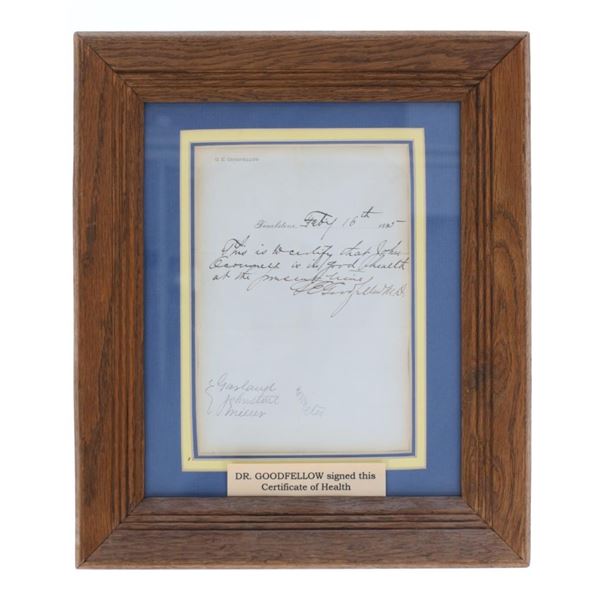 G. E. GOODFELLOW
Tombstone, Feby 16th 1885
This is to certify that John
is in good health
at the present time
G E Goodfellow M.D.
Garland
Johnston
Miller
DR. GOODFELLOW signed this
Certificate of Health